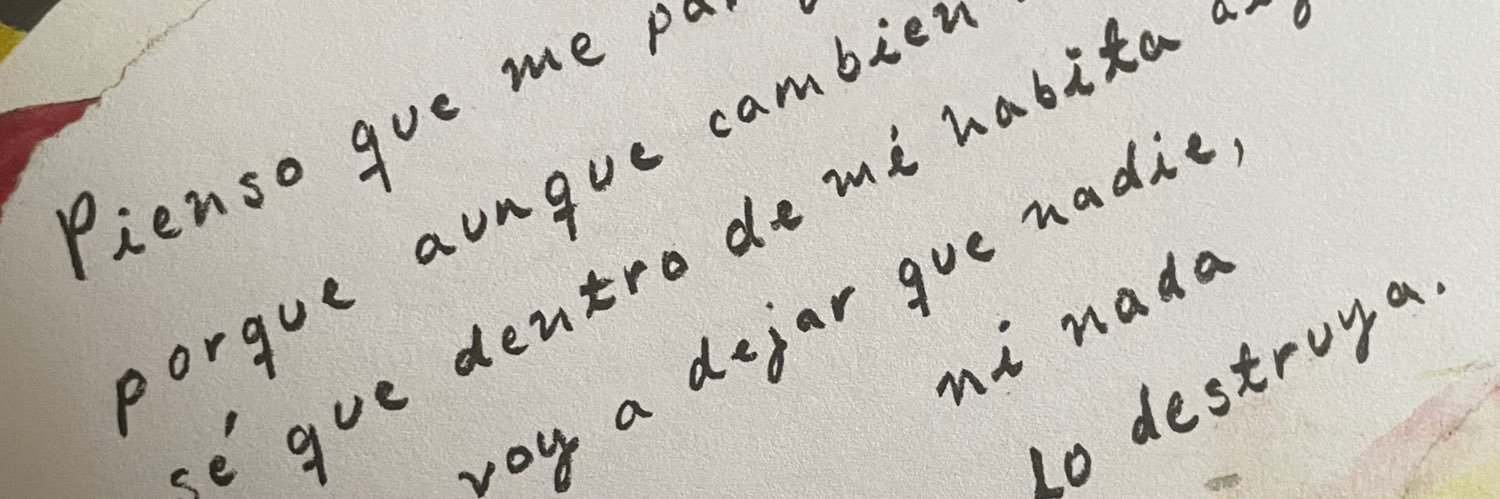 Pienso que me
porque aunque cambien
sé que dentro de mí habita
voy a dejar que nadie,
ni nada
lo destruya.